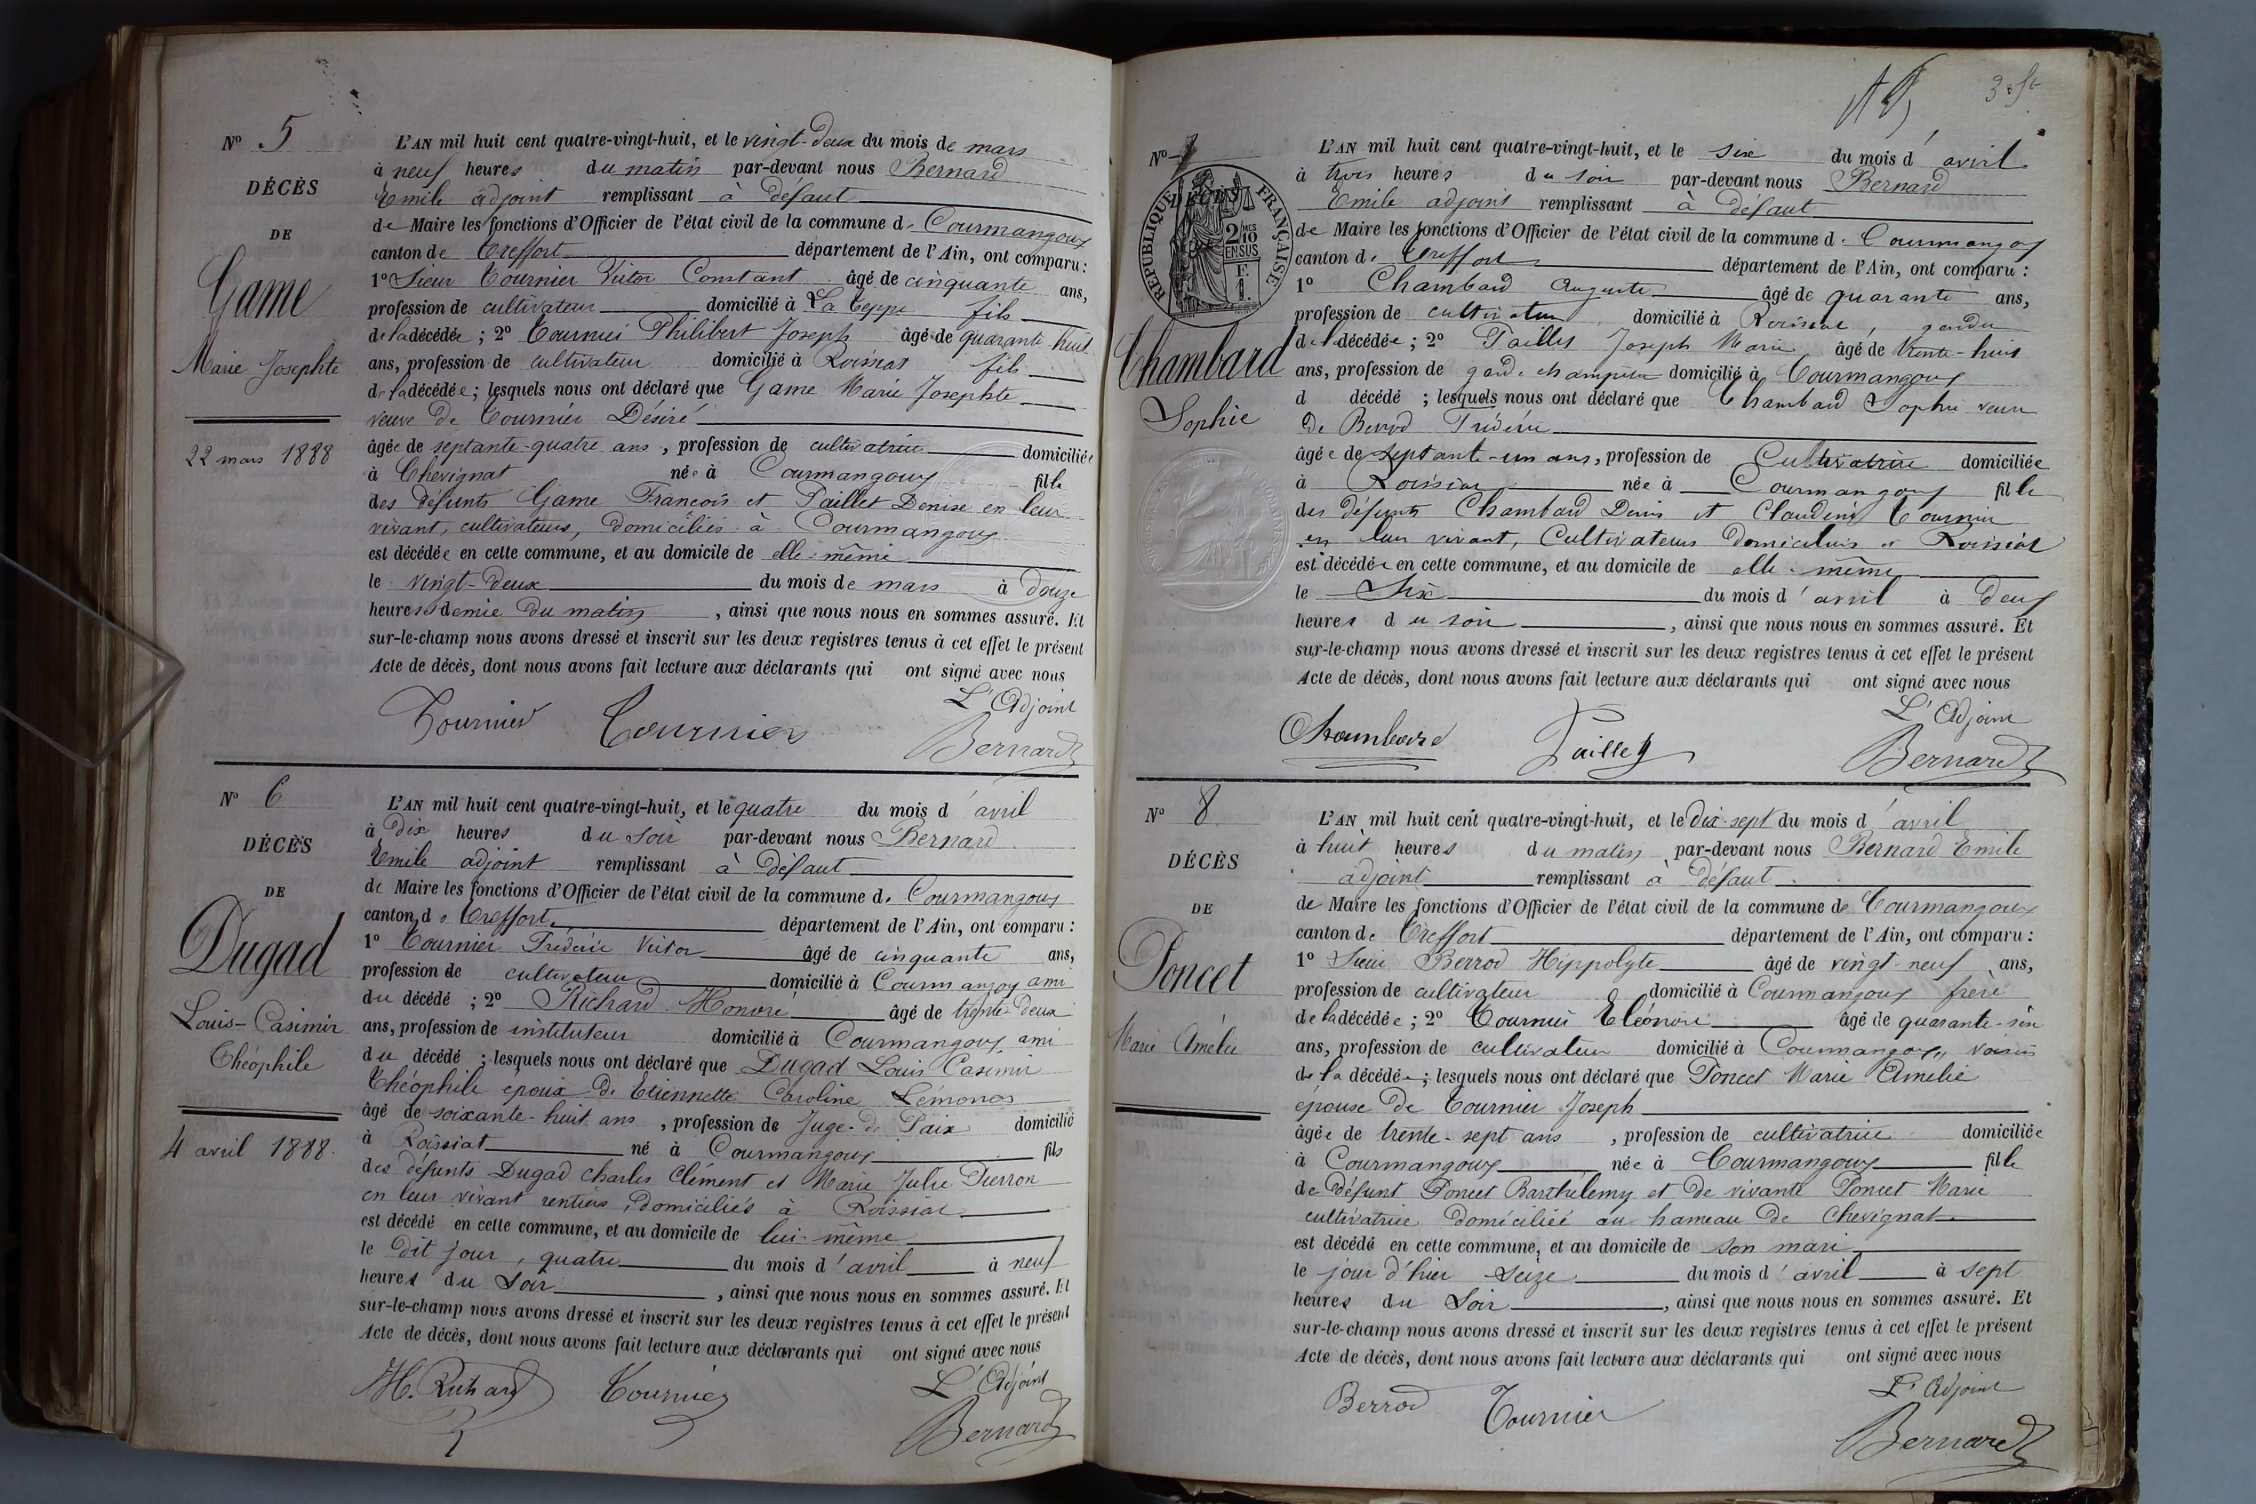 Nº 5
DÉCÈS
DE
Game
Marie Josephte
22 mars 1888
L'AN mil huit cent quatre-vingt-huit, et le vingt-deux du mois de mars
à neuf heures du matin par-devant nous Bernard
Emile adjoint remplissant à défaut
de Maire les fonctions d'Officier de l'état civil de la commune de Courmangoux
canton de Treffort département de l'Ain, ont comparu :
1º Sieur Tournier Victor Constant âgé de cinquante ans,
profession de cultivateur domicilié à La Teppe fils
de la décédée ; 2º Tournier Philibert Joseph âgé de quarante huit
ans, profession de cultivateur domicilié à Roissiat fils
de la décédée ; lesquels nous ont déclaré que Game Marie Josephte
veuve de Tournier Désiré
âgée de septante-quatre ans, profession de cultivatrice domiciliée
à Chevignat née à Courmangoux fille
des défunts Game François et Paillet Denise en leur
vivant, cultivateurs, domiciliés à Courmangoux
est décédée en cette commune, et au domicile de elle-même
le vingt-deux du mois de mars à douze
heures demie du matin, ainsi que nous nous en sommes assuré. Et
sur-le-champ nous avons dressé et inscrit sur les deux registres tenus à cet effet le présent
Acte de décès, dont nous avons fait lecture aux déclarants qui ont signé avec nous
L'Adjoint
Tournier Tournier Bernard
Nº 6
DÉCÈS
DE
Dugad
Louis-Casimir
Théophile
4 avril 1888.
L'AN mil huit cent quatre-vingt-huit, et le quatre du mois d'avril
à dix heures du soir par-devant nous Bernard
Emile adjoint remplissant à défaut
de Maire les fonctions d'Officier de l'état civil de la commune de Courmangoux
canton de Treffort département de l'Ain, ont comparu :
1º Tournier Frédéric Victor âgé de cinquante ans,
profession de cultivateur domicilié à Courmangoux ami
du décédé ; 2º Richard Honoré âgé de trente-deux
ans, profession de instituteur domicilié à Courmangoux ami
du décédé ; lesquels nous ont déclaré que Dugad Louis Casimir
Théophile époux de Etiennette Caroline
âgé de soixante-huit ans, profession de Juge-de Paix domicilié
à Roissiat né à Courmangoux fils
des défunts Dugad Charles Clément et Marie Julie Pierron
en leur vivant rentiers, domiciliés à Roissiat
est décédé en cette commune, et au domicile de lui-même
le dit jour, quatre du mois d'avril à neuf
heures du soir, ainsi que nous nous en sommes assuré. Et
sur-le-champ nous avons dressé et inscrit sur les deux registres tenus à cet effet le présent
Acte de décès, dont nous avons fait lecture aux déclarants qui ont signé avec nous
L'Adjoint
H. Richard Tournier Bernard
Nº 7
DÉCÈS
RÉPUBLIQUE FRANÇAISE
Chambard
Sophie
L'AN mil huit cent quatre-vingt-huit, et le six du mois d'avril
à trois heures du soir par-devant nous Bernard
Emile adjoint remplissant à défaut
de Maire les fonctions d'Officier de l'état civil de la commune de Courmangoux
canton de Treffort département de l'Ain, ont comparu :
1º Chambard Auguste âgé de quarante ans,
profession de cultivateur domicilié à Roissiat,
de la décédée ; 2º Paillet Joseph Marie âgé de trente-huit
ans, profession de garde champêtre domicilié à Courmangoux
d décédé ; lesquels nous ont déclaré que Chambard Sophie veuve
de Berrod Frédéric
âgée de septante-un ans, profession de Cultivatrice domiciliée
à Roissiat née à Courmangoux fille
des défunts Chambard Denis et Claudine Tournier
en leur vivant, Cultivateurs domiciliés à Roissiat
est décédée en cette commune, et au domicile de elle-même
le six du mois d'avril à deux
heures du soir, ainsi que nous nous en sommes assuré. Et
sur-le-champ nous avons dressé et inscrit sur les deux registres tenus à cet effet le présent
Acte de décès, dont nous avons fait lecture aux déclarants qui ont signé avec nous
L'Adjoint
Chambard Paillet Bernard
Nº 8
DÉCÈS
DE
Poncet
Marie Amélie
L'AN mil huit cent quatre-vingt-huit, et le dix-sept du mois d'avril
à huit heures du matin par-devant nous Bernard Emile
adjoint remplissant à défaut
de Maire les fonctions d'Officier de l'état civil de la commune de Courmangoux
canton de Treffort département de l'Ain, ont comparu :
1º Sieur Berrod Hippolyte âgé de vingt-neuf ans,
profession de cultivateur domicilié à Courmangoux frère
de la décédée ; 2º Tournier Eléonore âgé de quarante-six
ans, profession de cultivateur domicilié à Courmangoux, voisin
de la décédée ; lesquels nous ont déclaré que Poncet Marie Amélie
épouse de Tournier Joseph
âgée de trente-sept ans, profession de cultivatrice domiciliée
à Courmangoux née à Courmangoux fille
de défunt Poncet Barthélemy et de vivante Poncet Marie
cultivatrice domiciliée au hameau de Chevignat
est décédé en cette commune, et au domicile de son mari
le jour d'hier seize du mois d'avril à sept
heures du soir, ainsi que nous nous en sommes assuré. Et
sur-le-champ nous avons dressé et inscrit sur les deux registres tenus à cet effet le présent
Acte de décès, dont nous avons fait lecture aux déclarants qui ont signé avec nous
L'Adjoint
Berrod Tournier Bernard